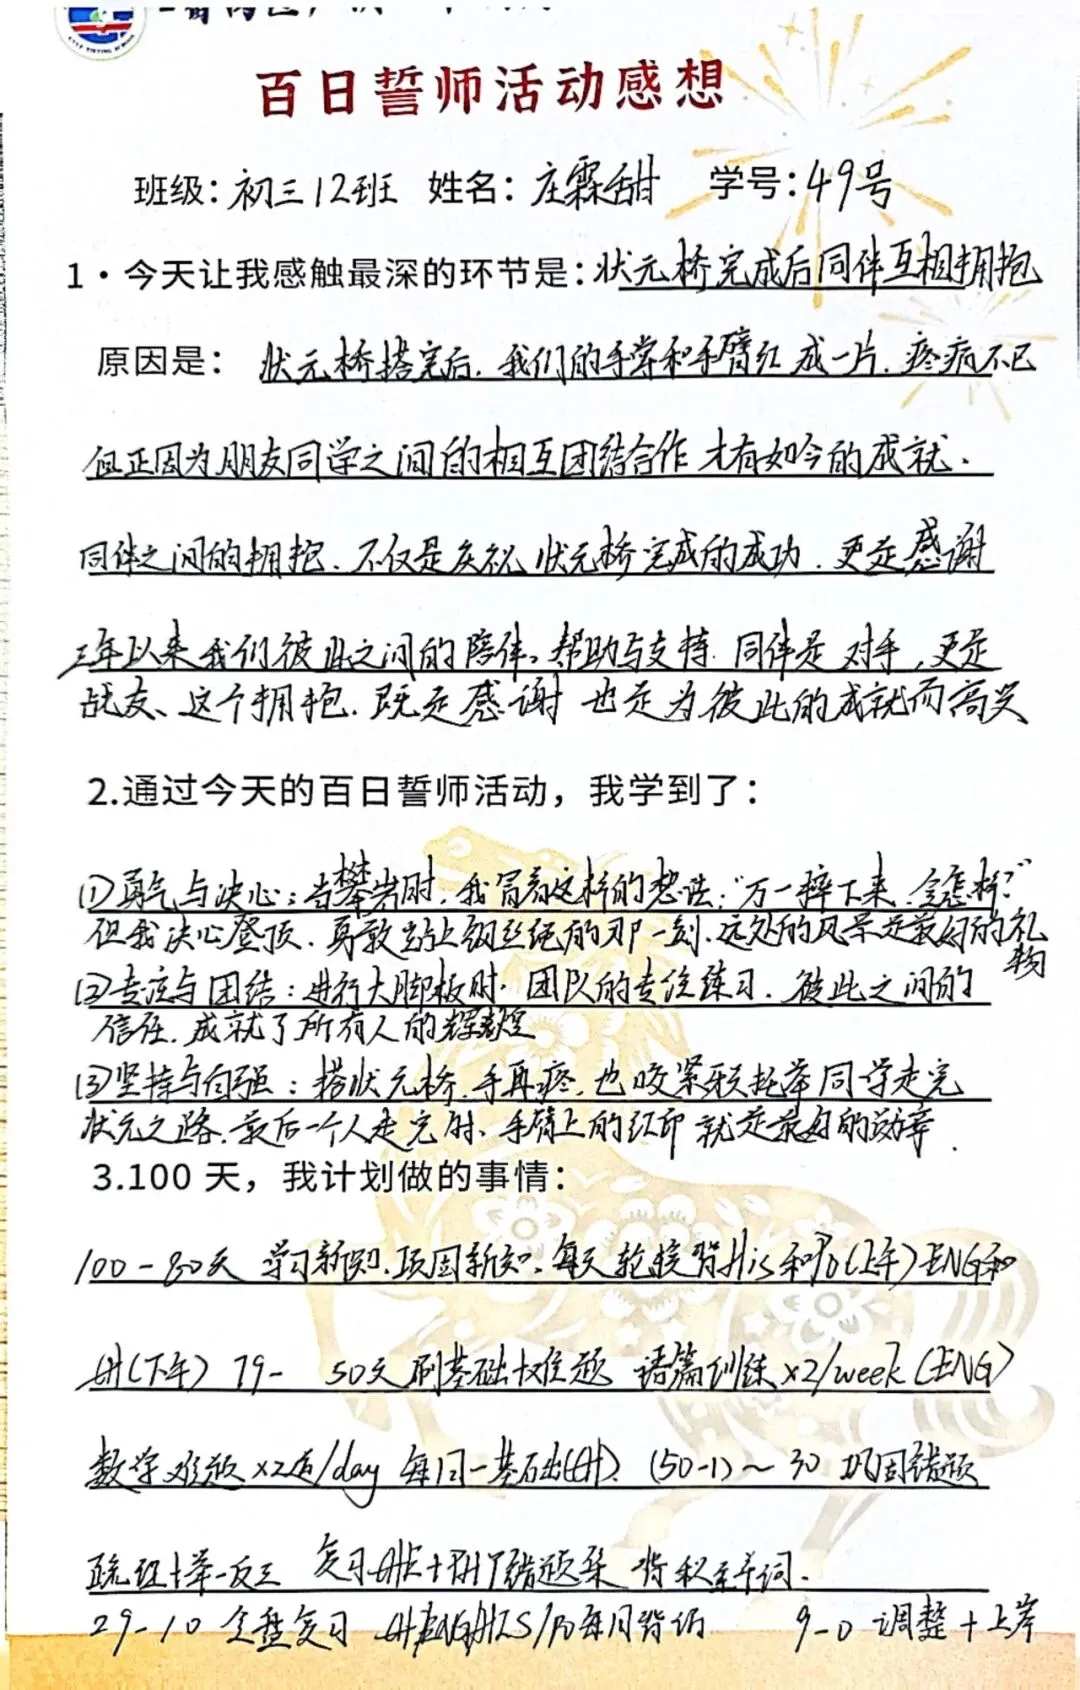 百日誓师活动感想
班级:初三12班 姓名:庄霖甜 学号:49号
1·今天让我感触最深的环节是:状元桥完成后同伴互相拥抱
原因是: 状元桥搭完后,我们的手掌和手臂红成一片,疼痛不已
但正因为朋友同学之间的相互团结合作 才有如今的成就.
同伴之间的拥抱.不仅是庆祝状元桥完成的成功.更是感谢
三年以来我们彼此之间的陪伴、帮助与支持.同伴是对手,更是
战友、这个拥抱.既是感谢 也是为彼此的成就而高兴
2.通过今天的百日誓师活动,我学到了:
①勇气与决心:当攀岩时,我冒着这样的想法:“万一摔下来,会怎样?”
但我决心登顶.勇敢站上钢丝绳的那一刻.远处的风景是最好的礼物
②专注与团结:进行大脚板时.团队的专注练习.彼此之间的
信任.成就了所有人的辉煌
③坚持与自强:搭状元桥.手再疼.也咬紧牙托举同学走完
状元之路.最后一个人走完时、手臂上的红印就是最好的勋章.
3.100 天,我计划做的事情:
100-80天 学习新知.巩固新知、每天轮换背His和Po(上午)ENG和
(下午) 79- 50天 刷基础+难题 语篇训练×2/week(ENG)
数学难题×2道/day 每周一基础 (50-1)~30 巩固错题
+举一反三 复习 + 错题集 背 单词.
29-10 全盘复习 ENG/HIS/Po每月背诵 9-0 调整+上岸